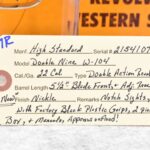 REVOLV
WESTERN S
Mfg. High Standard Serial# 2154107
Model Double Nine W-104
Cal. 22 Cal Type Double Action
Barrel 5½" Blade Front, Adj.
Finish Nickle Notch Sights,
With Factory Black Plastic Grips, 2
Box, & Manuals, Appears unfired!